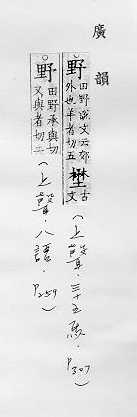 廣韻
野 田野說文云郊外也羊者切五 壄 古文 (上聲,三十五馬,P307)
野 田野承與切又與者切二 (上聲,八語,P259)